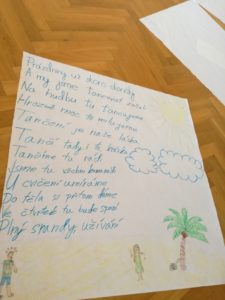 Prázdniny už skoro skončily
A my jsme tancovat začali
Na hudbu tu tancujeme
Hrozně moc to milujeme
Tančení je naše láska
Tančí tady i
Tančíme tu rádi
Jsme tu všichni kamarádi
U cvičení umíráme
Do těla si přitom dáme
Ve čtvrtek tu bude spaní
Plný srandy, užívání